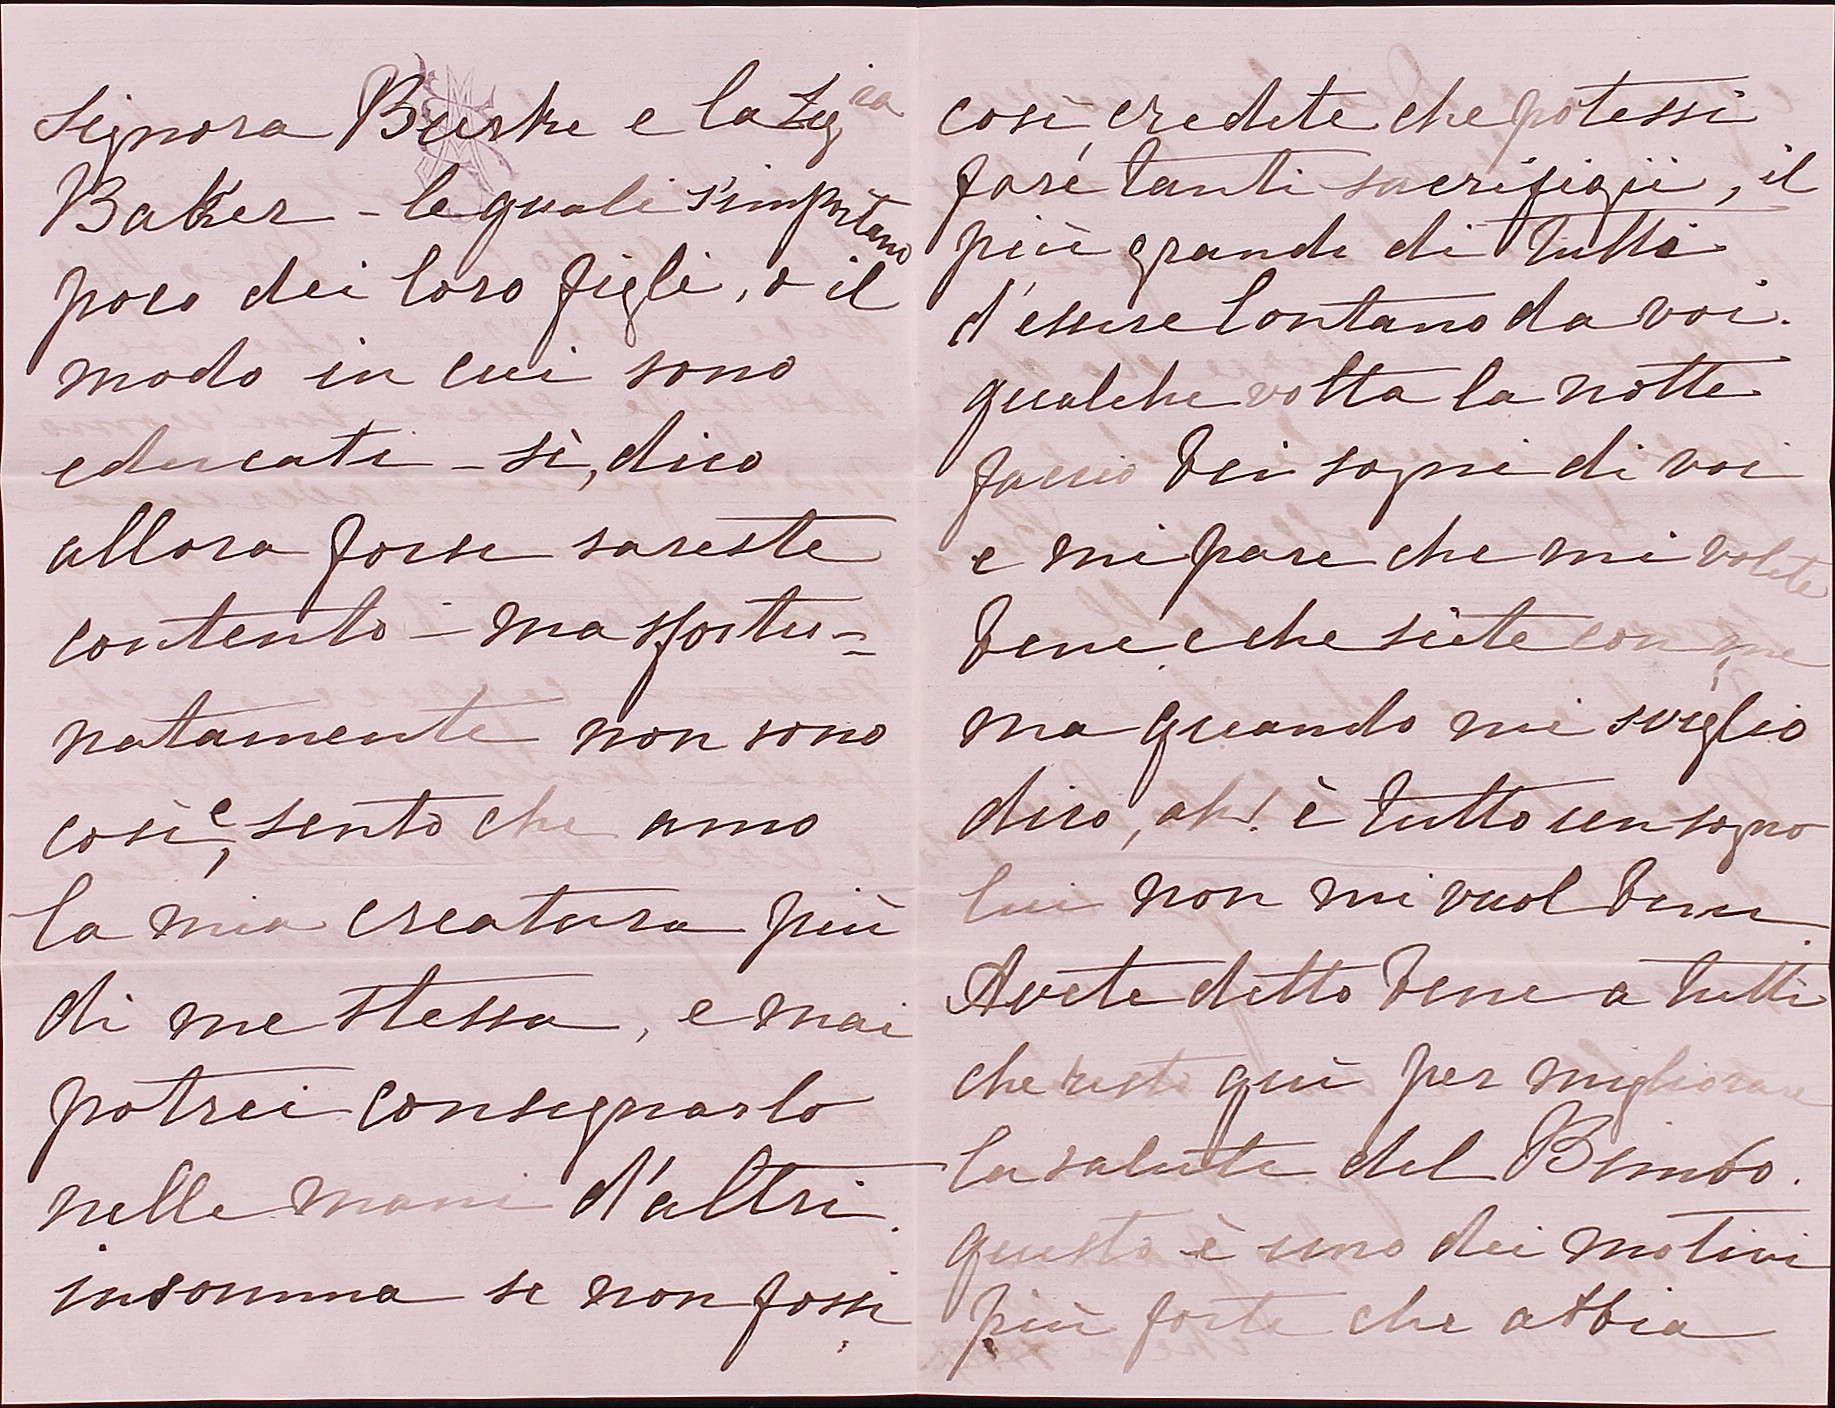 Signora Burke e la Sig.ra
Baker - le quali s'importano
poco dei loro figli, o il
modo in cui sono
educati - sì, dico
allora forse sareste
contento - ma sfortu=
natamente non sono
così, e sento che amo
la mia creatura più
di me stessa, e mai
potrei consegnarlo
nelle mani d'altri.
insomma se non fossi
così, credete che potessi
fare tanti sacrifizii, il
più grande di tutti
d'essere lontano da voi.
qualche volta la notte
faccio bei sogni di voi
e mi pare che mi volete
bene e che siete con me,
ma quando mi sveglio
dico, ah! è tutto un sogno
lui non mi vuol bene
Avete detto bene a tutti
che resto quì per migliorare
la salute del Bimbo.
questo è uno dei motivi
più forte che abbia